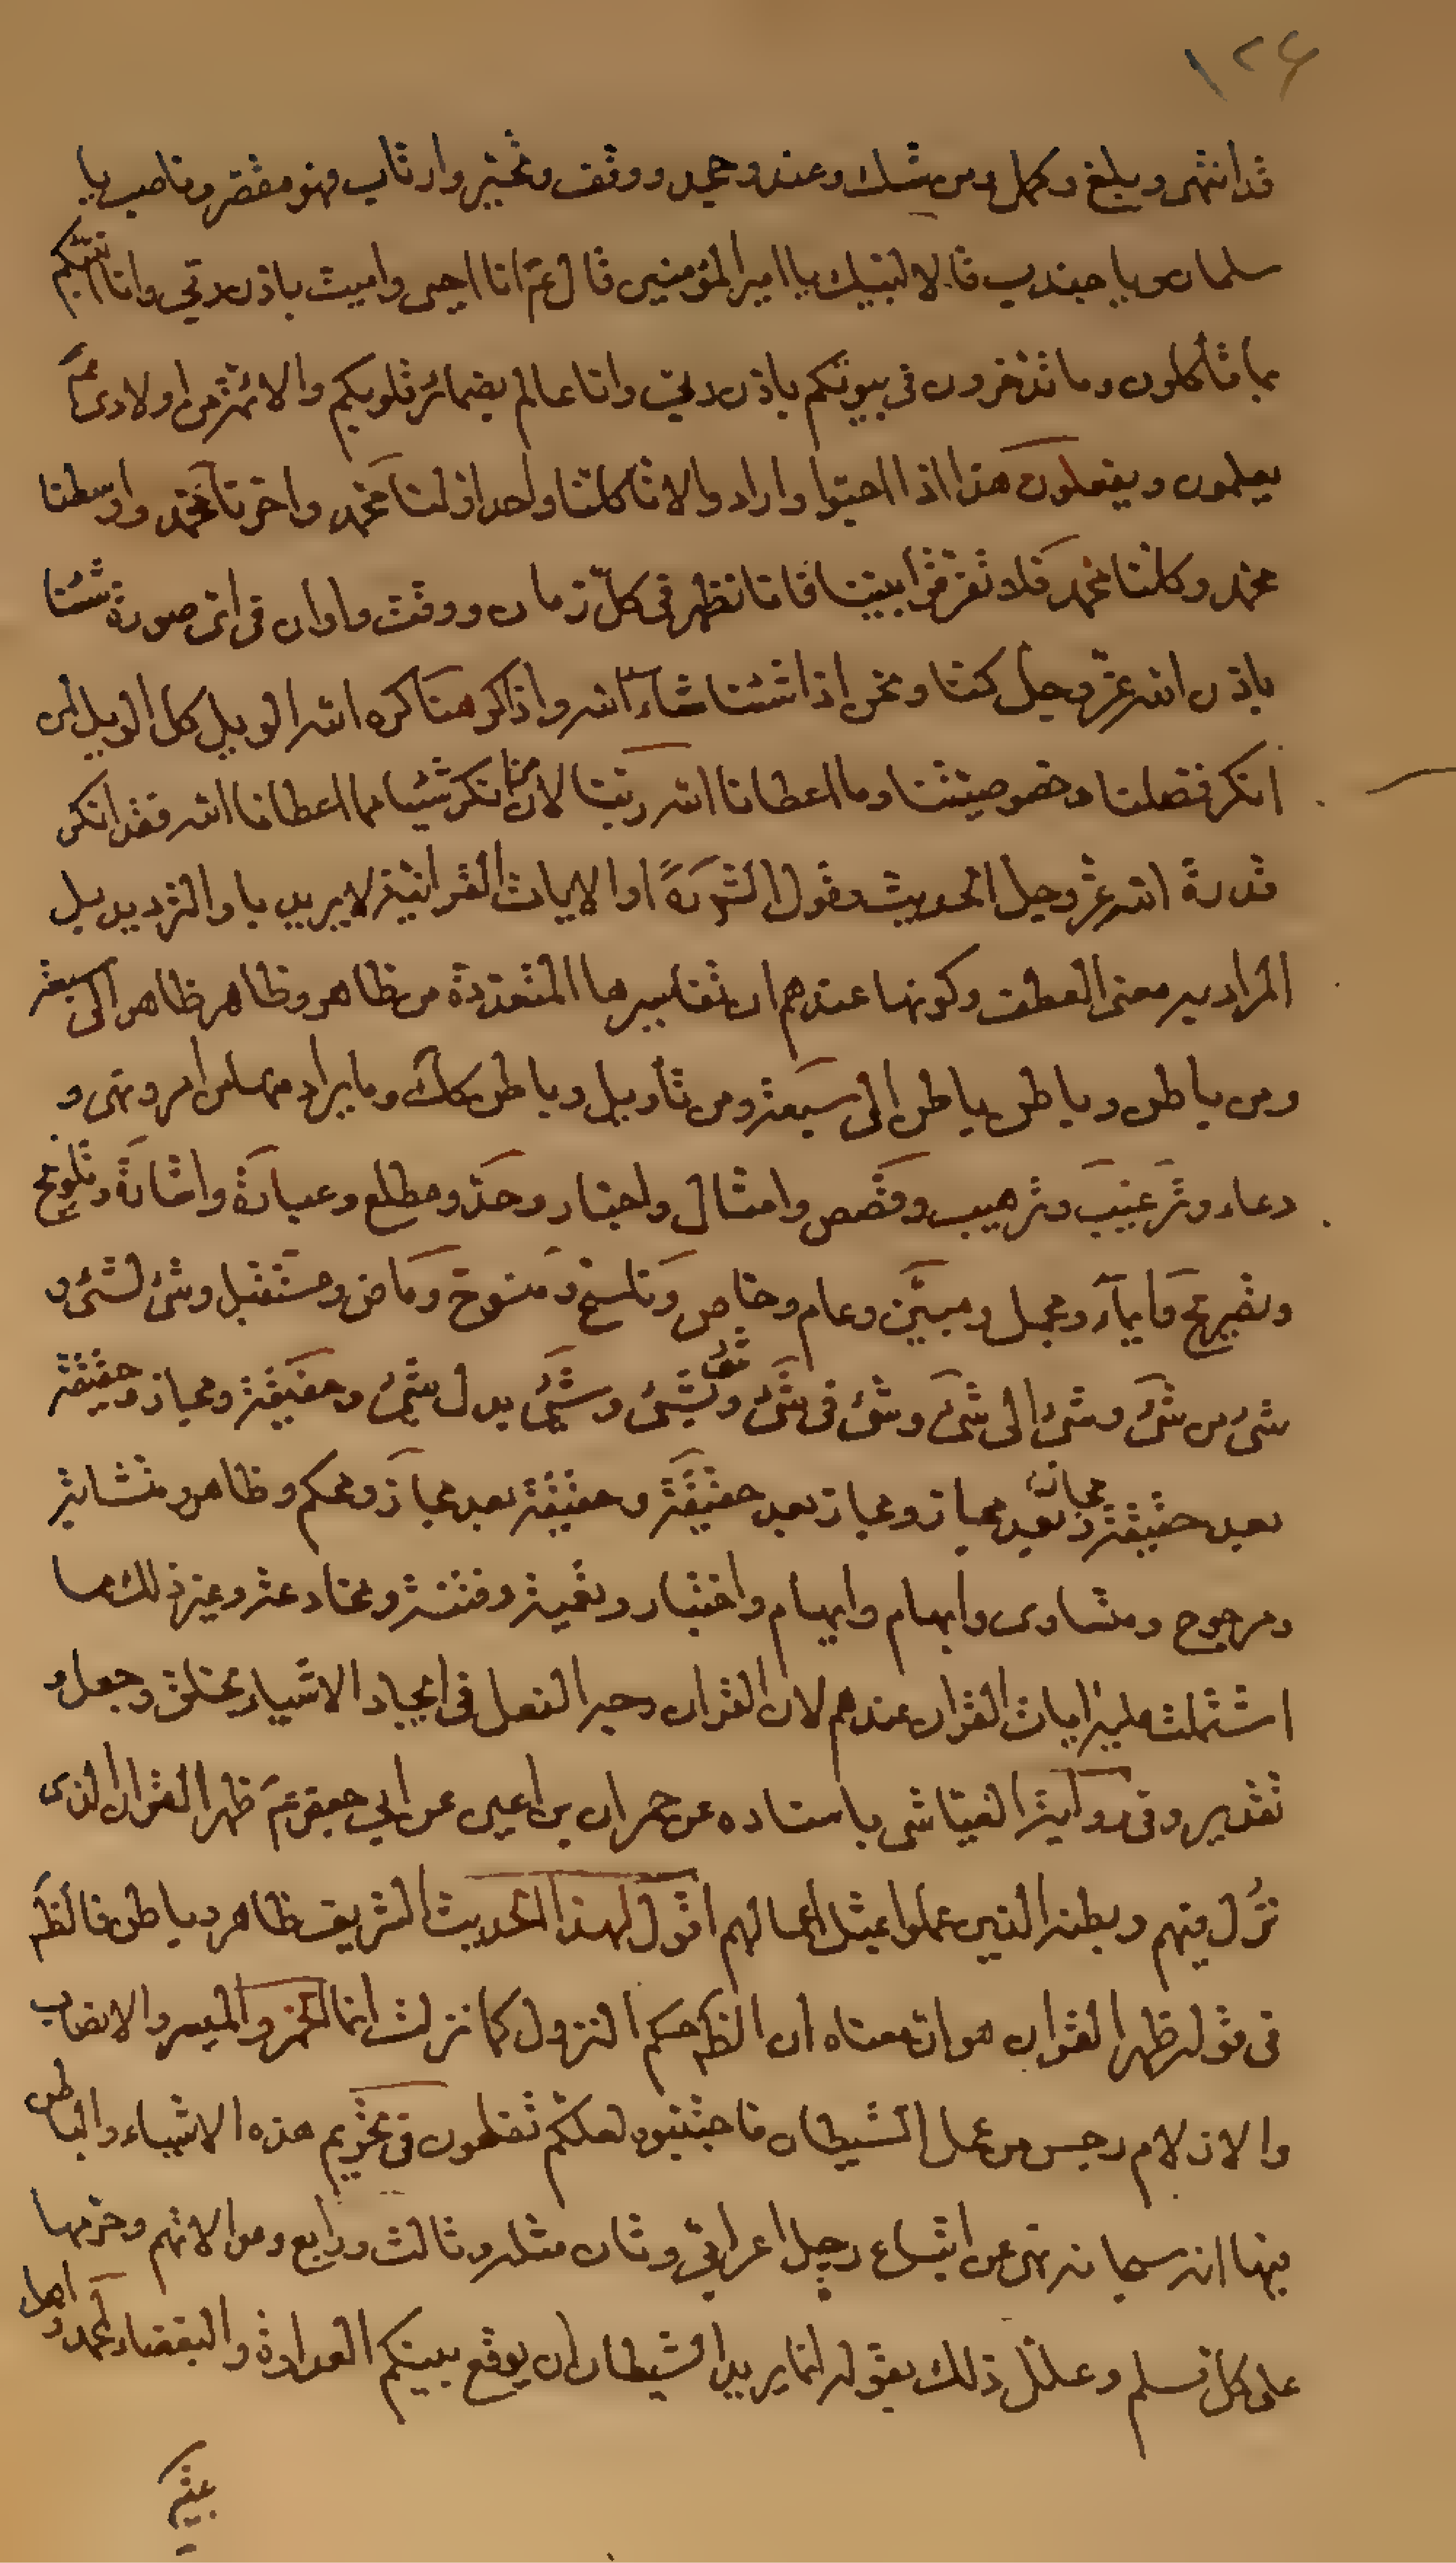 ١٢٦
قد انتهى وبلغ وكمل ومن شك وعند وجحد ووقف وتحير وارتاب فهو مقصر وناصب يا
سلمان ويا جندب قالا لبيك يا امير المؤمنين قال عم انا احيى واميت باذن ربى وانا انبئكم
بما تأكلون وما تدخرون فى بيوتكم باذن ربى وانا عالم بضمائر قلوبكم والائمة من اولادى عم
يعلمون ويفعلون هذا اذا احبوا وارادوا لانا كلنا واحد اولنا محمد واخرنا محمد واوسطنا
محمد وكلنا محمد فلا تفرقوا بيننا فانا نظهر فى كل زمان ووقت واوان فى اى صورة شئنا
باذن الله عز وجل كنا ونحن اذا شئنا شاء الله واذا كرهنا كره الله الويل كل الويل لمن
انكر فضلنا وخصوصيتنا وما اعطانا الله ربنا لان من انكر شيئا مما اعطانا الله فقد انكر
قدرة الله عز وجل الحديث وقول السورة او الايات القرانية لا يريد باو الترديد بل
المراد به معنى العطف وكونها عندهم ان تفاسيرها المتعددة من ظاهر وظاهر ظاهر الى سبعة
ومن باطن وباطن باطن الى سبعة ومن تأويل وباطن كل وما يراد منها من امر ونهى و
دعاء وترغيب وترهيب وقصص وامثال واخبار وحد ومطلع وعبارة واشارة وتلويح
وتصريح وايماء ومجمل ومبين وعام وخاص وناسخ ومنسوخ وماض ومستقبل وشئ لشئ و
شئ من شئ وشئ الى شئ وشئ فى شئ وشئ بشئ وشئ بدل شئ وحقيقة ومجاز وحقيقة
بعد حقيقة ومجاز بعد مجاز ومجاز بعد حقيقة وحقيقة بعد مجاز ومحكم وظاهر ومتشابه
ومرجوح ومتساوى وابهام وايهام واختبار وتمييز وفتنة ومخادعة وغير ذلك مما
اشتملت عليه ايات القران عندهم لان القران وجه الفعل فى ايجاد الاشياء بخلق وجعل و
تقدير وفى رواية العياشى باسناده عن حمران بن اعين عن ابى جعفر عم ظهر القران الذى
نزل فيهم وبطنه الذين عملوا بمثل اعمالهم اقول لهذا الحديث الشريف ظاهر وباطن فالظم
فى قوله ظهر القران هو ان معناه ان الظم حكم النزول كما نزلت انما الخمر والميسر والانصاب
والازلام رجس من عمل الشيطان فاجتنبوه لعلكم تفلحون فى تحريم هذه الاشياء والباطن
فيها انه سبحانه نهى عن اتباع رجل اعرابى وثان مثله وثالث ورابع ومن الاتهم وحرمها
على كل مسلم وعلل ذلك بقوله انما يريد الشيطان ان يوقع بينكم العداوة والبغضاء لمحمد واهل
بيته